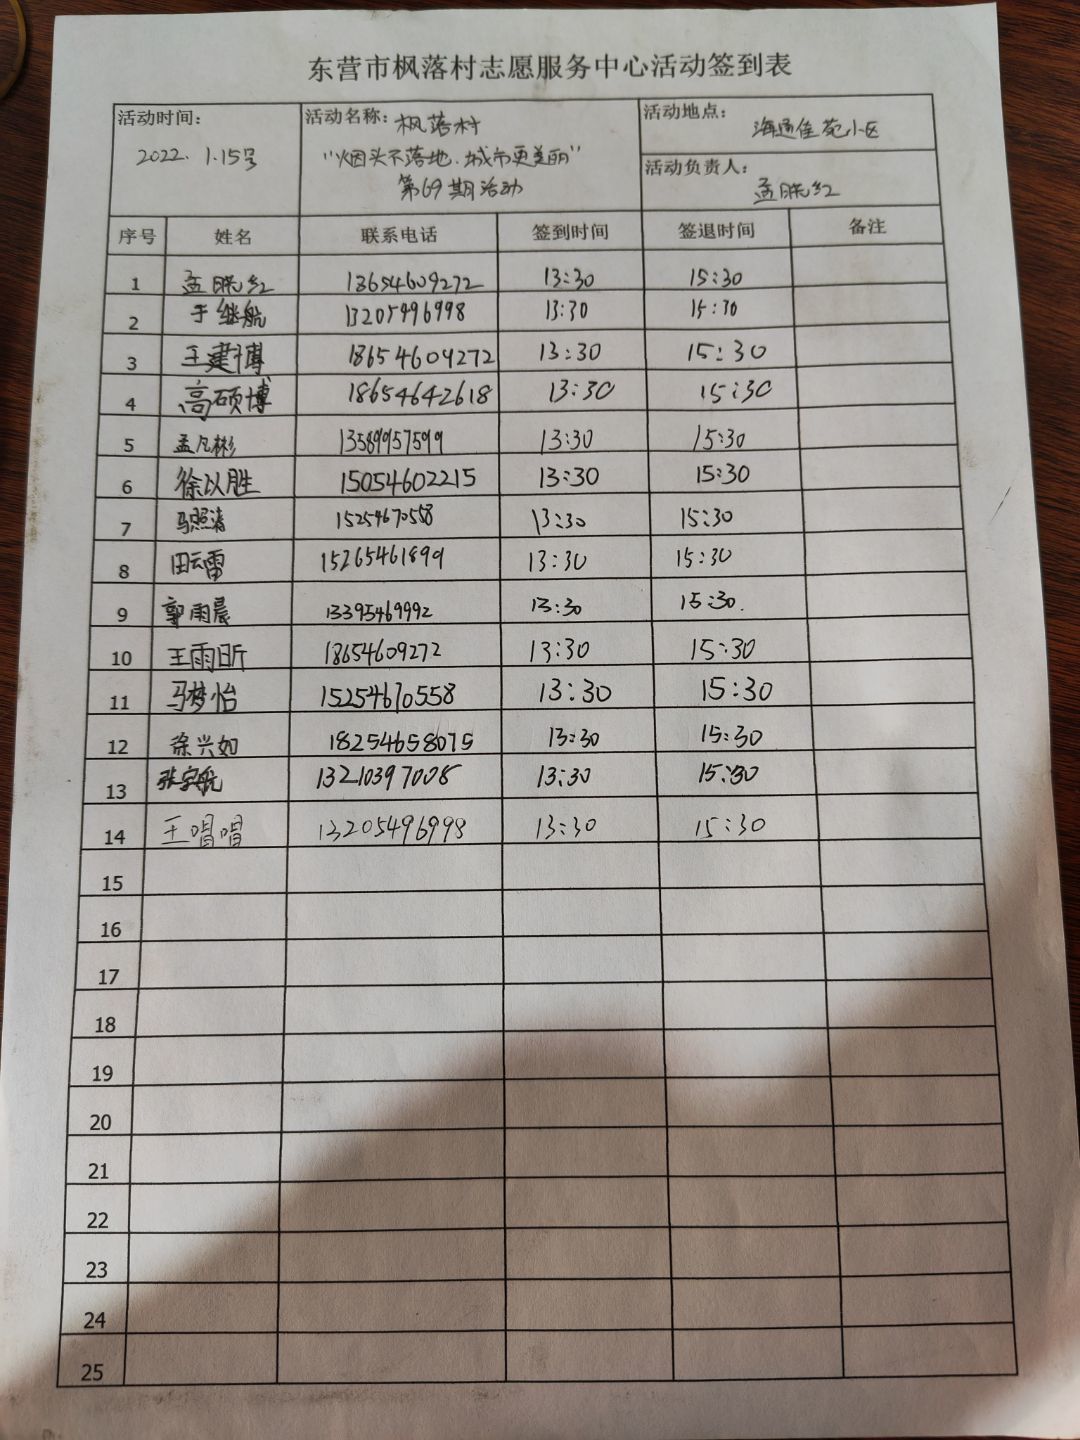 东营市枫落村志愿服务中心活动签到表
活动时间：
2022.1.15号
活动名称：枫落村
"烟头不落地.城市更美丽"
第69期活动
活动地点：海通佳苑小区
活动负责人：孟晓红
序号 姓名 联系电话 签到时间 签退时间 备注
1 孟晓红 18654609272 13:30 15:30
2 于继航 13205496998 13:30 15:30
3 王建博 18654609272 13:30 15:30
4 高硕博 18654642618 13:30 15:30
5 孟凡彬 13589957599 13:30 15:30
6 徐以胜 15054602215 13:30 15:30
7 马照涛 15254670558 13:30 15:30
8 田云雷 15265461899 13:30 15:30
9 郭雨晨 13395469992 13:30 15:30.
10 王雨昕 18654609272 13:30 15:30
11 马梦怡 15254670558 13:30 15:30
12 徐兴如 18254658075 13:30 15:30
13 张宇航 13210397008 13:30 15:30
14 王唱唱 13205496998 13:30 15:30
15
16
17
18
19
20
21
22
23
24
25